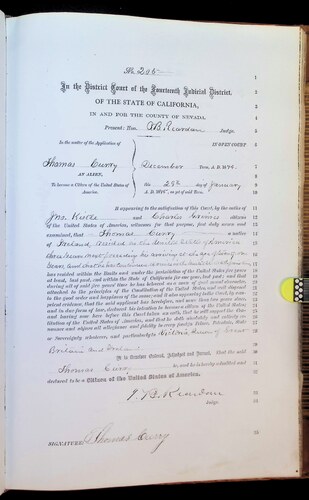 No 295
In the District Court of the Fourteenth Judicial District,
OF THE STATE OF CALIFORNIA,
IN AND FOR THE COUNTY OF NEVADA.
Present: Hon. J B Reardon Judge.
In the matter of the Application of
IN OPEN COURT
Thomas Curry
December Term, A. D. 1874.
AN ALIEN,
To become a Citizen of the United States of America.
this 28th day of January
A. D. 1875, as yet of said Term.
It appearing to the satisfaction of this Court, by the oaths of
Jno. and Charles citizens
of the United States of America, witnesses for that purpose, first duly sworn and
examined, that Thomas Curry a native
of Ireland, arrived in the United States of America
has resided within the limits and under the jurisdiction of the United States five years
at least, last past, and within the State of California for one year, last past; and that
during all of said five years' time he has behaved as a man of good moral character,
attached to the principles of the Constitution of the United States, and well disposed
to the good order and happiness of the same; and it also appearing to the Court, by competent
evidence, that the said applicant has heretofore, and more than two years since,
and in due form of law, declared his intention to become a citizen of the United States;
and having now here, before this Court taken an oath, that he will support the Constitution
of the United States of America, and that he doth absolutely and entirely renounce
and abjure all allegiance and fidelity to every foreign Prince, Potentate, State
or Sovereignty whatever, and particularly to Victoria Queen of Great
Britain and Ireland
It is therefore Ordered, Adjudged and Decreed, That the said
Thomas Curry be and he is hereby admitted and
declared to be a Citizen of the United States of America.
J. B. Reardon
Judge.
SIGNATURE: Thomas Curry